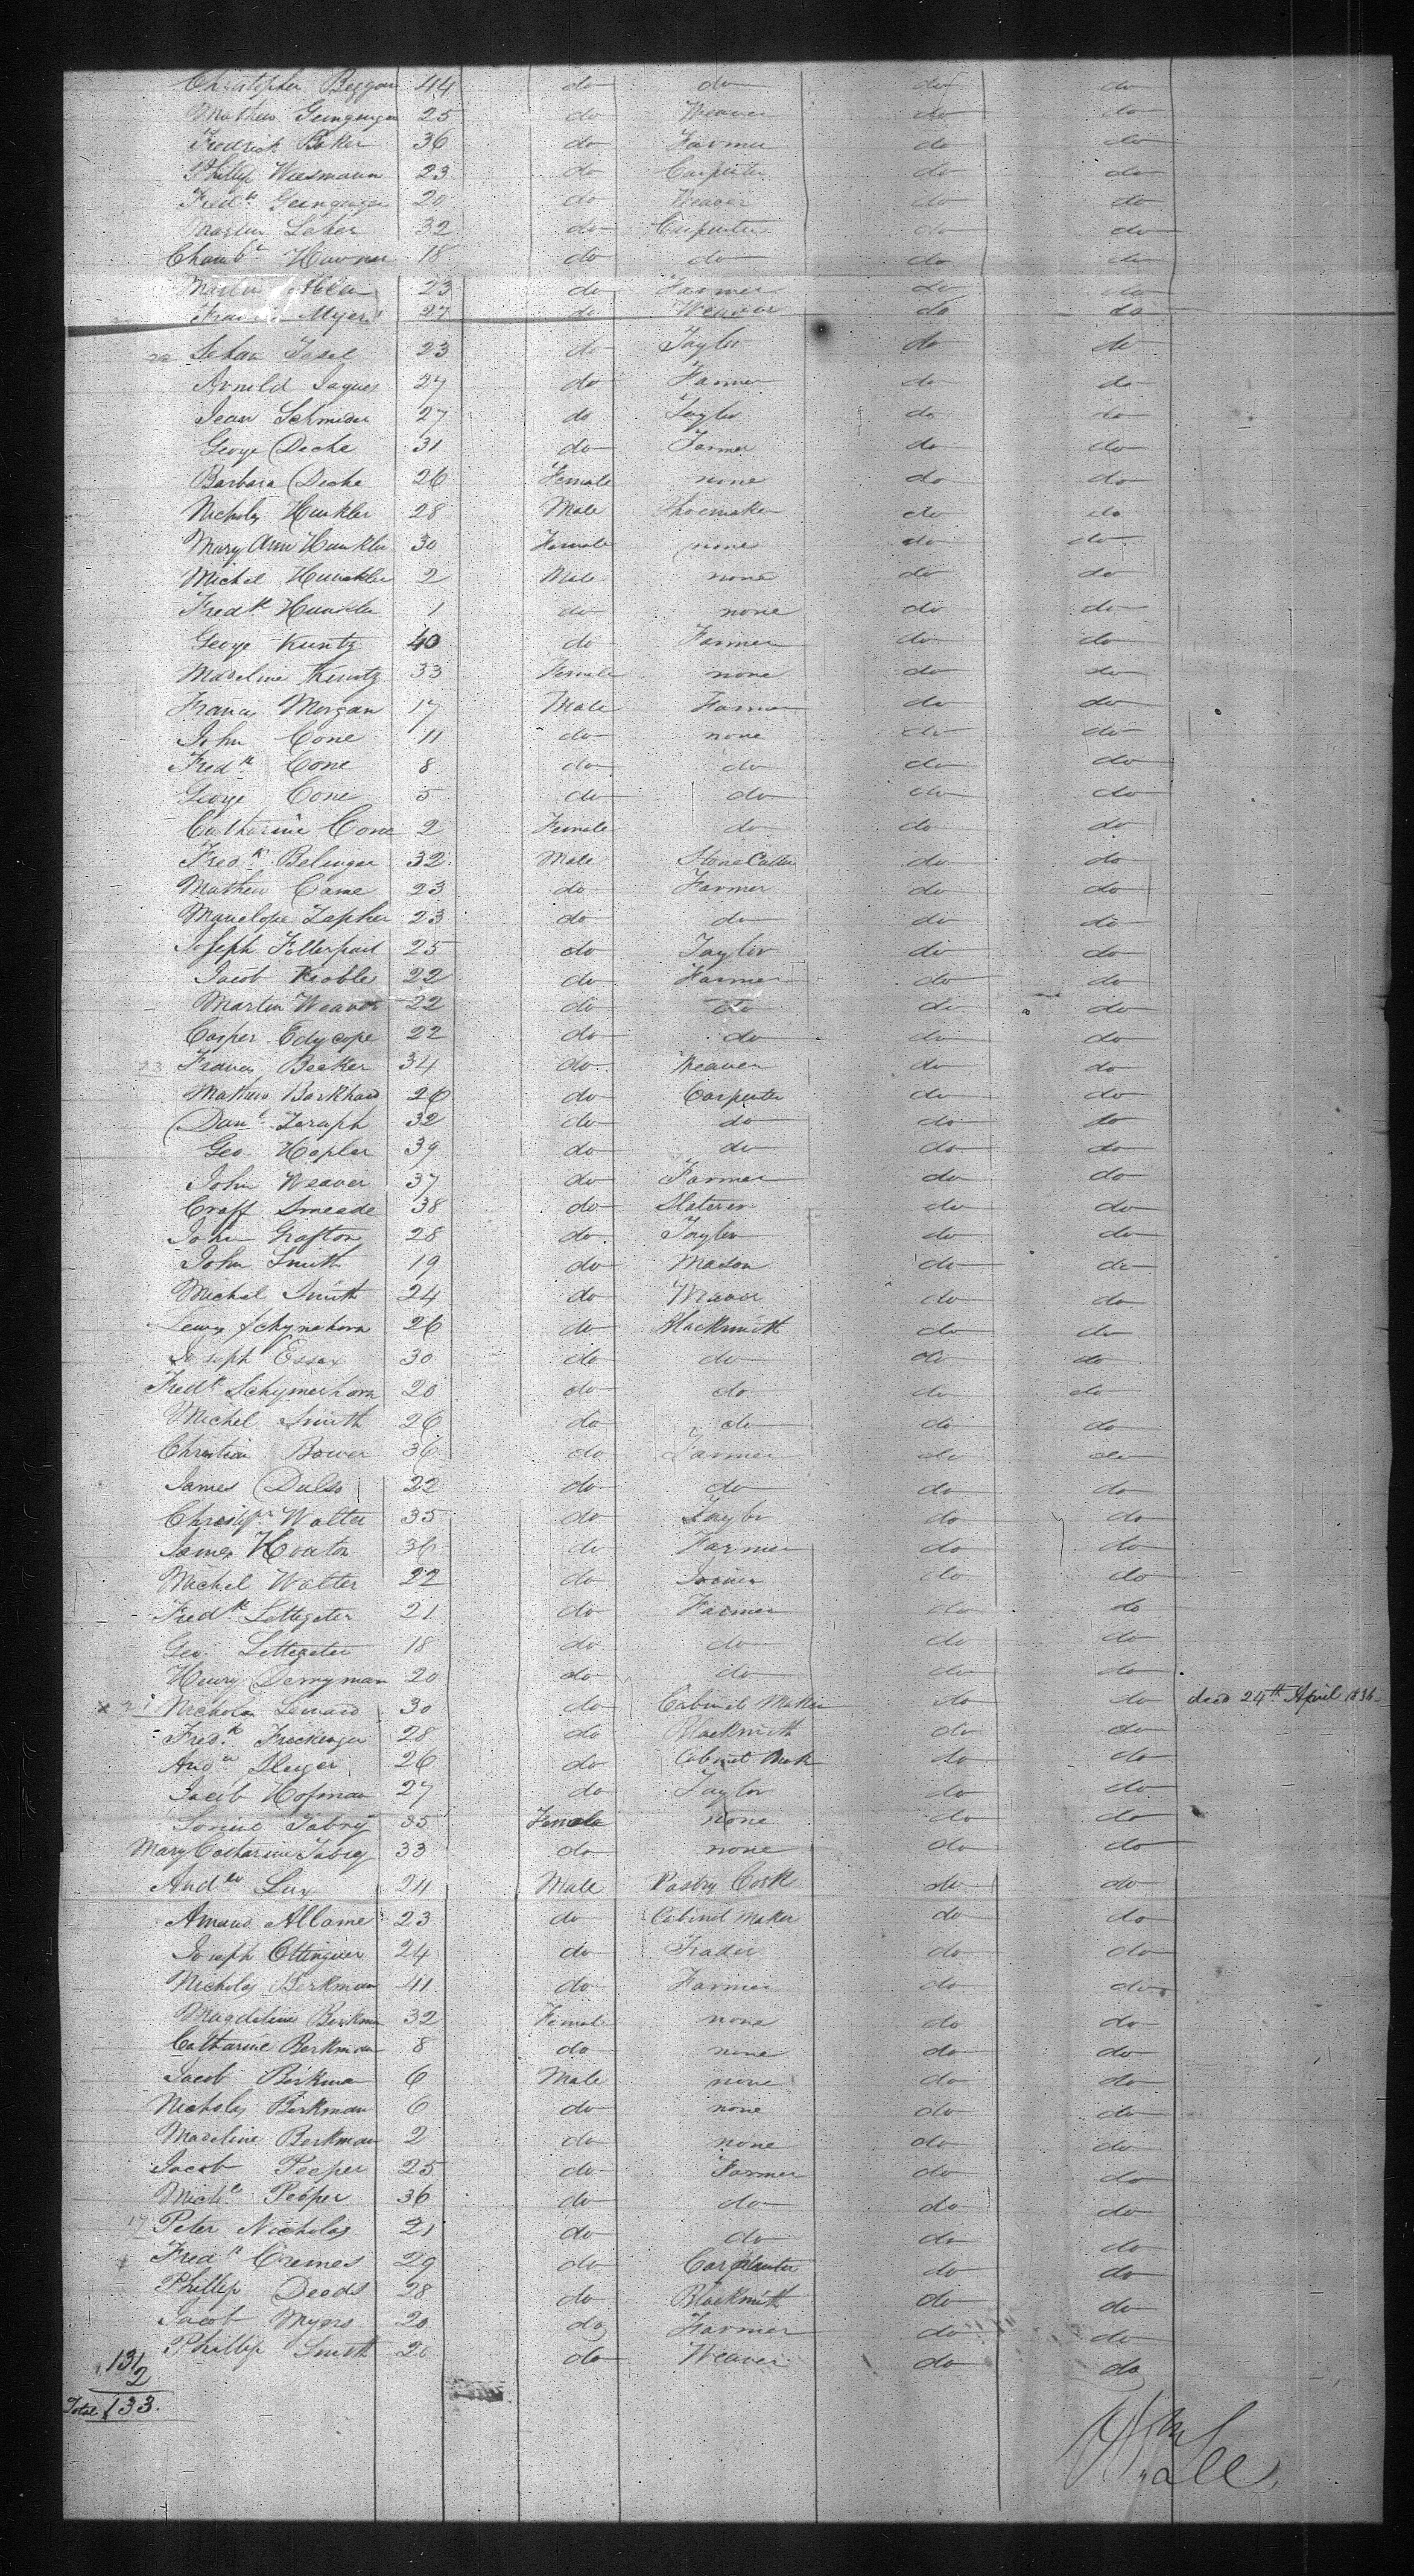 Christopher Beggon 44 do do do do
Mathew Geingenger 25 do Weaver do do
Fredrick Baker 36 do Farmer do do
Phillip Wiesmann 23 do Carpenter do do
Fredk. Geingenger 20 do Weaver do do
Martin Leher 32 do Carpenter do do
Havner 18 do do do do
Martin 23 do Farmer do do
Myers 27 do Weaver do do
Josel 23 do Taylor do do
Arnold Jaques 27 do Farmer do do
Jean Schmider 27 do Taylor do do
George Deche 31 do Farmer do do
Barbara Deche 26 Female none do do
Nicholas Hunkler 28 Male Shoemaker do do
Mary Ann Hunkler 30 Female none do do
Michel Hunckler 2 Male none do do
Fredk Hunkler 1 do none do do
George Kuntz 40 do Farmer do do
Madeline Kuntz 33 Female none do do
Francis Morgan 17 Male Farmer do do
John Cone 11 do none do do
Fredk. Cone 8 do do do do
George Cone 5 do do do do
Catharine Cone 2 Female do do do
Fredk. Belinger 32 Male Stone Cutter do do
Mathew Came 23 do Farmer do do
Manelope Zapher 23 do do do do
Joseph Follerpail 25 do Taylor do do
Jacob Keoble 22 do Farmer do do
Martin Weaver 22 do do do do
Casper Edycope 22 do do do do
Francis Becker 34 do Weaver do do
Mathew Barkhard 26 do Carpenter do do
Danl. Zeraph 32 do do do do
Geo. Hepler 39 do do do do
John Weaver 37 do Farmer do do
Croff Smeade 38 do Slaterer do do
John Grafton 28 do Taylor do do
John Smith 19 do Mason do do
Michel Smith 24 do Weaver do do
Lewis Schynehorn 26 do Blacksmith do do
Joseph Essex 30 do do do do
Fredk Schymerhorn 20 do do do do
Michel Smith 26 do do do do
Christian Bower 36 do Farmer do do
James Dulso 22 do do do do
Christopr Walter 35 do Taylor do do
James Houton 36 do Farmer do do
Michel Walter 22 do Joiner do do
Fredk. Lettegeter 21 do Farmer do do
Geo. Lettegeter 18 do do do do
Henry Derryman 20 do do do do
Nicholas Lenard 30 do Cabinet Maker do do died 24th April 1836
Fredk. Freckenger 28 do Blacksmith do do
Andw Sleyer 26 do Cabinet Mak do do
Jacob Hofman 27 do Taylor do do
Lorine Tabrig 35 Female none do do
Mary Catharine Tabrig 33 do none do do
Andw Lux 24 Male Pastry Cook do do
Amand Allame 23 do Cabinet Maker do do
Joseph Ottinguer 24 do Trader do do
Nicholas Berkman 41 do Farmer do do
Magdeline Berkman 32 Female none do do
Catharine Berkman 8 do none do do
Jacob Berkman 6 Male none do do
Nicholas Berkman 6 do none do do
Madeline Berkman 2 do none do do
Jacob Peeper 25 do Farmer do do
Michl Peeper 36 do do do do
Peter Nicholas 21 do do do do
Fredk Cremes 29 do Carpenter do do
Phillip Deods 28 do Blacksmith do do
Jacob Myers 20 do Farmer do do
Phillip Smith 26 do Weaver do do
131
2
Total 133.